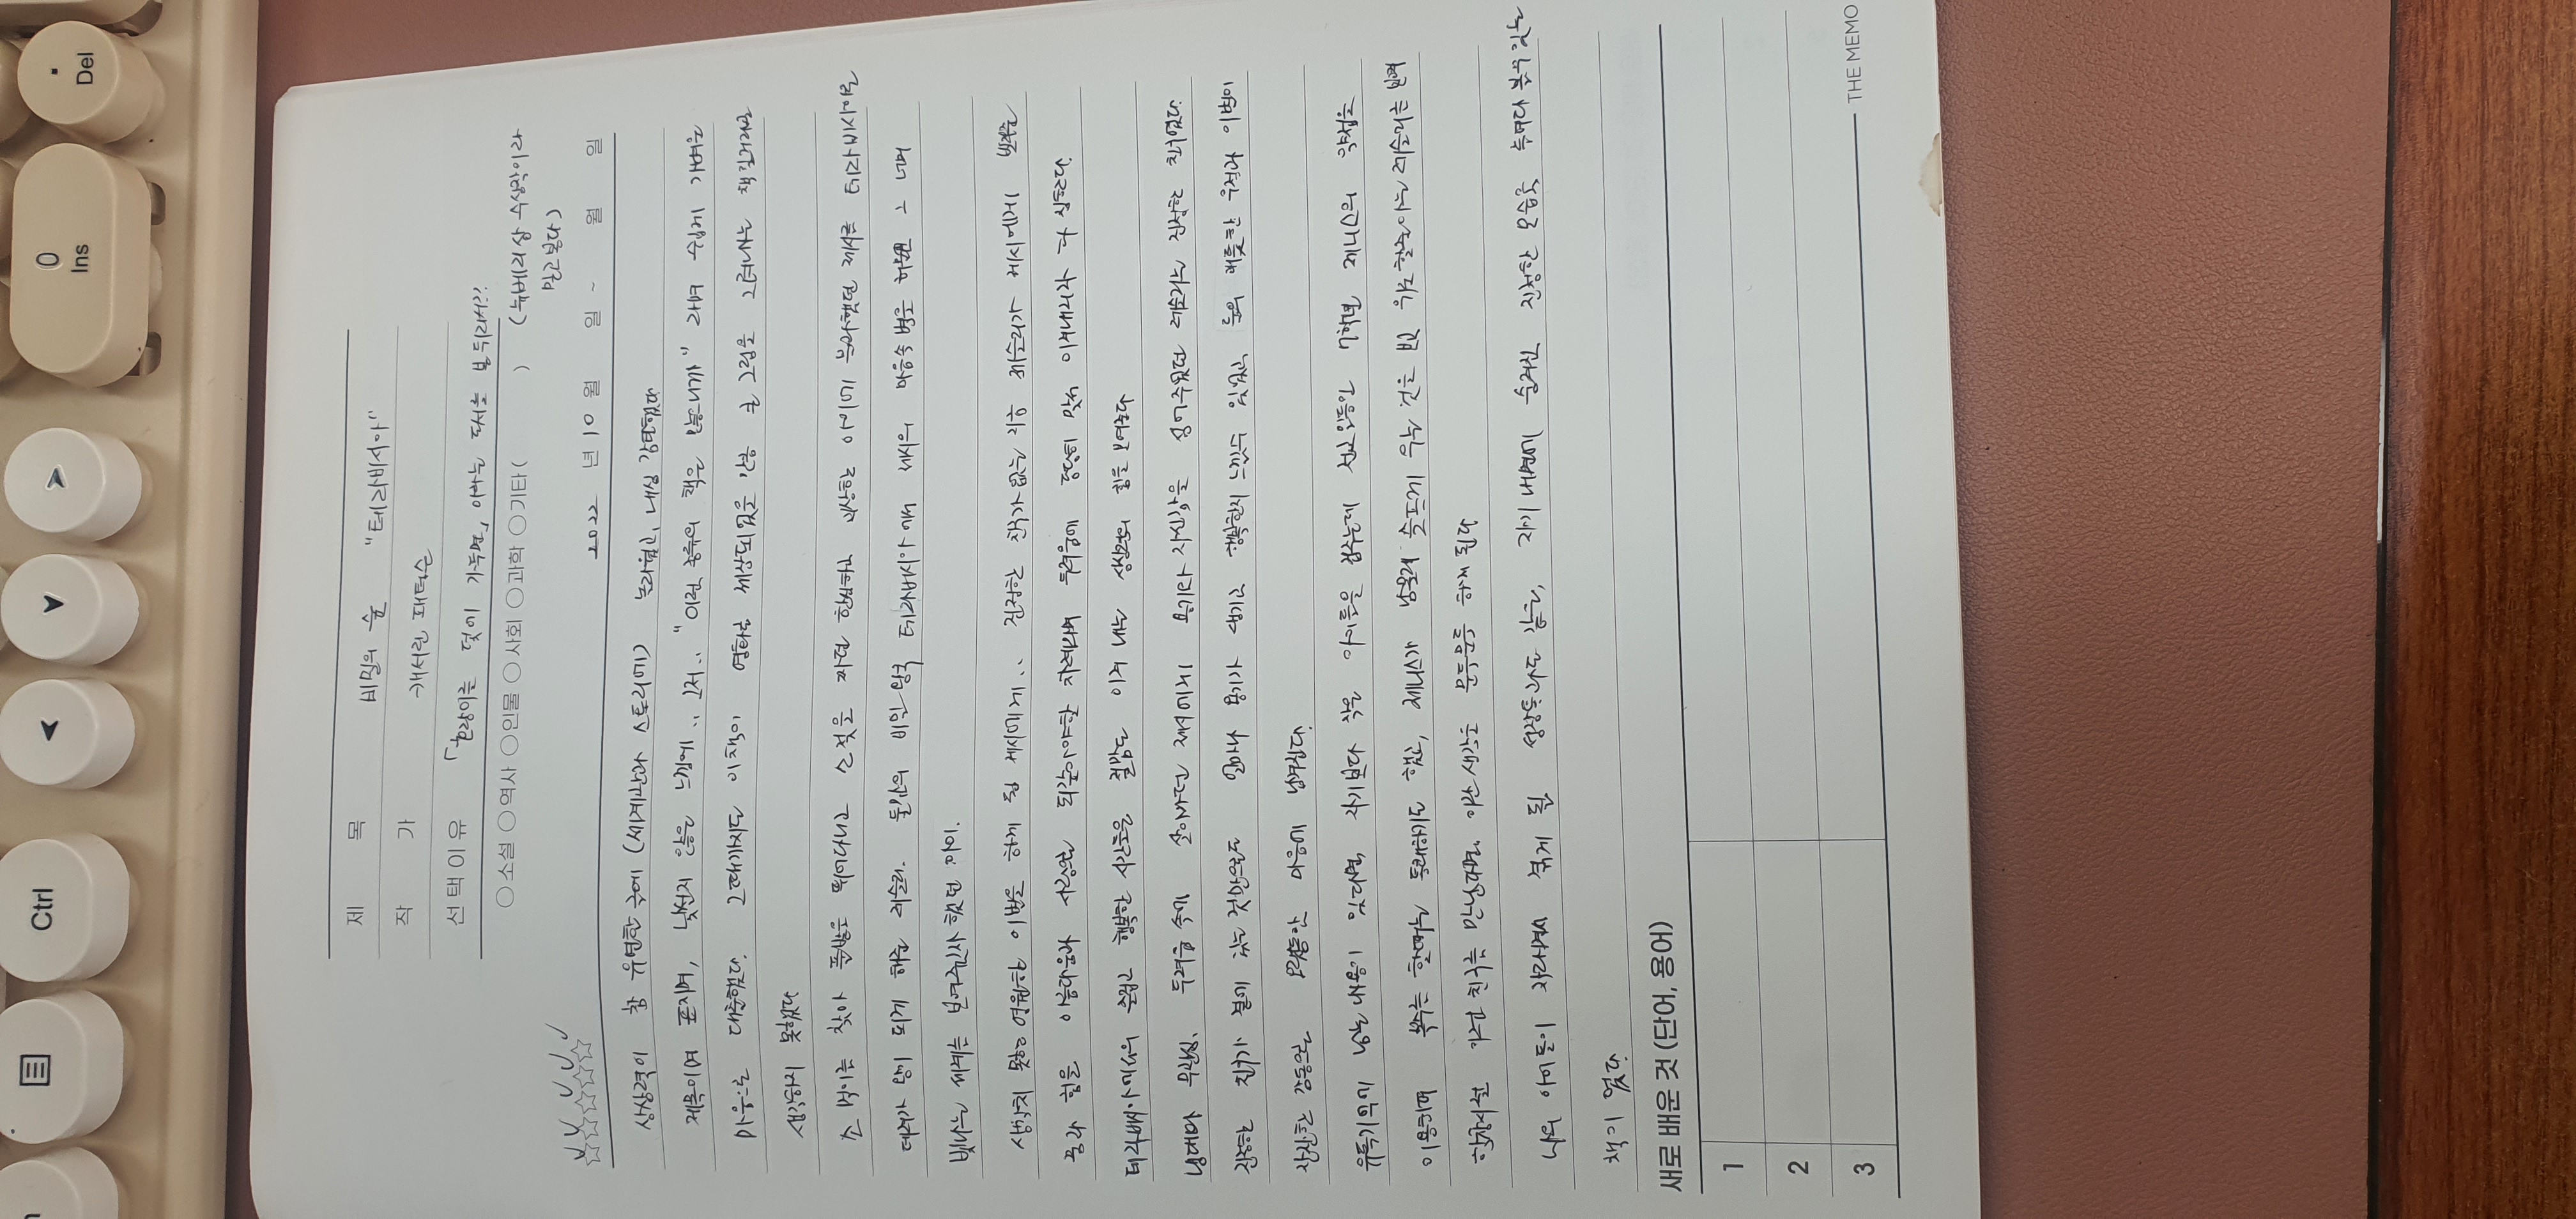 Ctrl
0
Ins
.
Del
제 목 비밀의 숲 "테라비시아"
작 가 캐서린 패터슨
선택이유 「호랑이를 덫에 가두면」 이라는 도서를 본 뒤라서??
○소설 ○역사 ○인물 ○사회 ○과학 ○기타( ) (뉴베리상 수상작이라
믿고본다)
2022 년 10 월 일 ~ 월 일
상상력이 참 유연한 극에 (세계관과 스토리에) 놀라웠고, 내심 감탄했다.
제목이며 표지며, 낯선지 않은 느낌에.. 그저.. "이런 종류의 책은 많으니까" 라며 쉽게 가벼운
마음으로 대출했다. 그때까지도 이책이 영화로 세상에 큰 그림을 그려내는 책일거라고
생각하지 못했다
소 먹이를 찾아 풀밭을 뛰어다니고 소젖을 짜던 한심하고 괴상한 아이에 불과했던 제시를 테라비시아로
데려가 왕이 되게 해준 레슬리. 둘만의 비밀 왕국 테라비시아에서 제시의 마음속 벽을 허물고 그 너머
빛나는 세계를 보여주고자 했던 아이.
생각치 못한 영원한 이별을 하게 된 제시에게.. 진정한 친구가 없는 지금 레슬리가 제시에게 보여준
꿈과 힘을 아름다움과 사랑으로 되갚아야할 차례라며 두려움에 당당히 맞서 이겨내리라 다짐한다.
테라비시아에서의 즐겁고 행복한 시간들은 절망도 이겨 내는 상상력의 힘을 보여준다
냉대와 무관심, 두려움 속에 살아가던 제시에게 용기와 자신감을 심어주었던 레슬리는 진정한 친구였다.
진정한 친구가 곁에 있는 것만으로도 얼마나 용기가 생기고 행복한지 느낄수 있었고, 둘의 애틋한 우정과 이별이
잔잔한 감동으로 오랫동안 마음에 남겨진다.
유독기억에 남는 내용이 있다면, 자기보다 작은 아이들을 겁주는데 전교일등인 7학년 제니스의 약점을
이용하며 복수를 할때는 통쾌하기도 했고, 제니스가 남몰래 슬프게 우는 것을 보고 위로할줄아는 레슬리를 보며
학창시절 이런 친구를 만난다면, 이란 생각을 문득문득 하게 된다
나의 아이들이 자라면서 겪게 될 성장통과도 같은, 자기 내면에 숨겨진 진정한 모습을 볼수 있는
책이 었다.
새로 배운 것 (단어, 용어)
1
2
3
THE MEMO